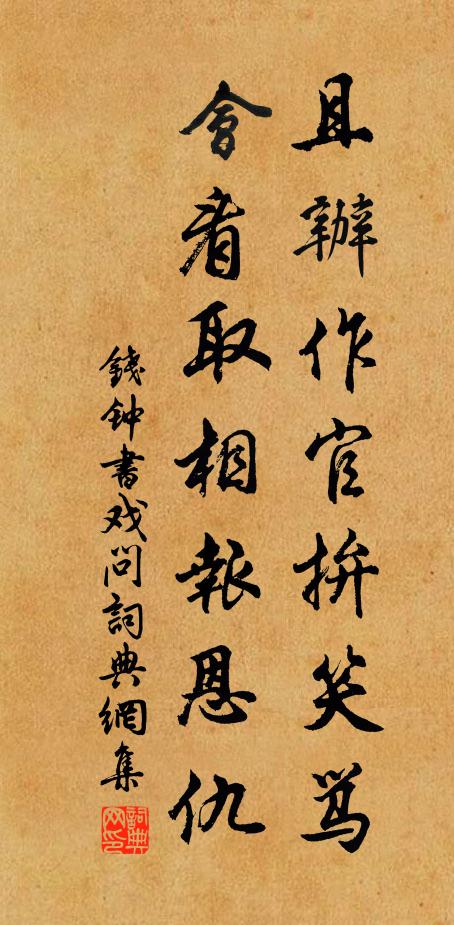 且辦作官拚笑骂
會看取相報恩仇
錢钟書戏问詞典網集
詞典網印